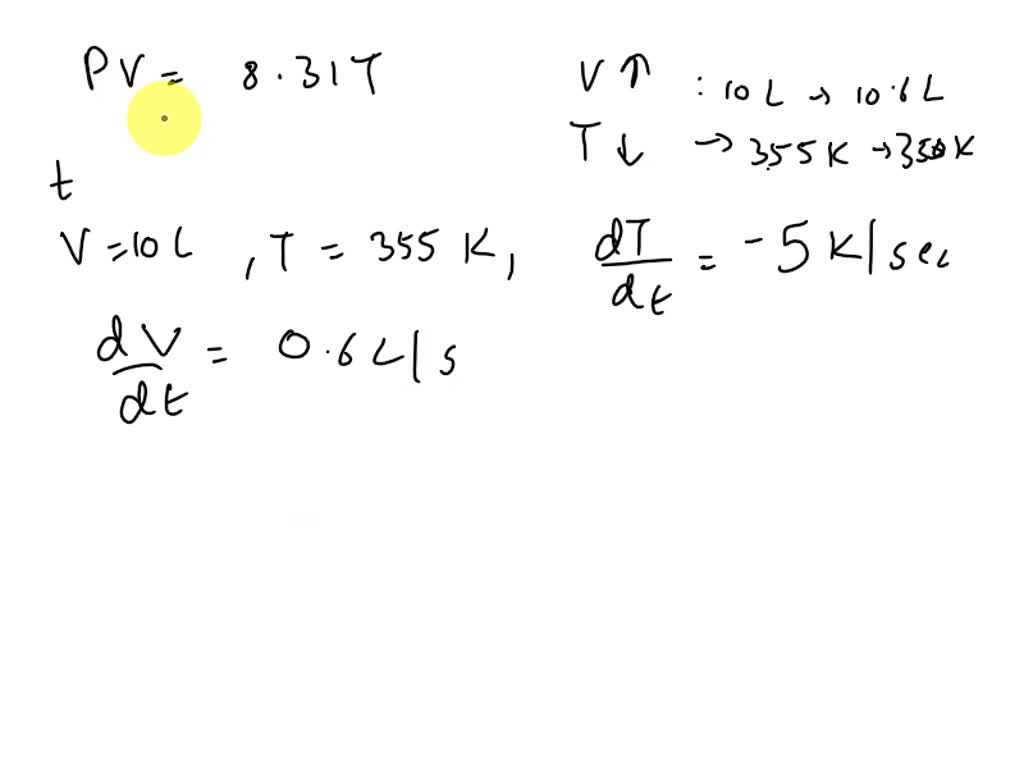 PV = 8.31T
V ↑ : 10 L → 10.6 L
T ↓ → 355 K → 350 K
t
V = 10 L , T = 355 K ,
dT/dt = -5 K/sec
dV/dt = 0.6 L/s